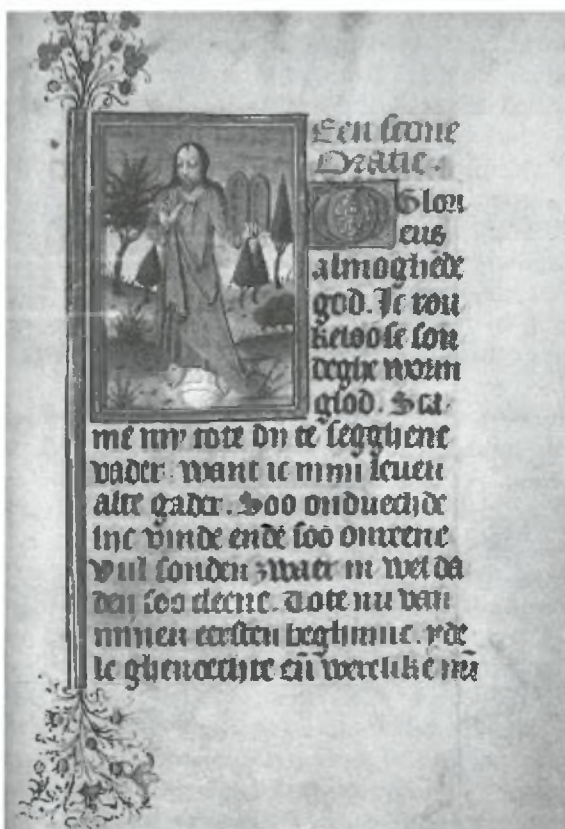 Een scone
Oratie.
O Glori
eus
almoghede
god. Ic rou
kelose son
deghe worm
glod. Sca
me my tote dy te segghene
vader. want ic mijn leven
alte gader. Soo onduechde
lijc vinde ende soo onreene
vul sonden zwaer in wel da
den soo cleene. Tote nu van
mynen eersten beghinne. yde
le ghenoechte en werelike